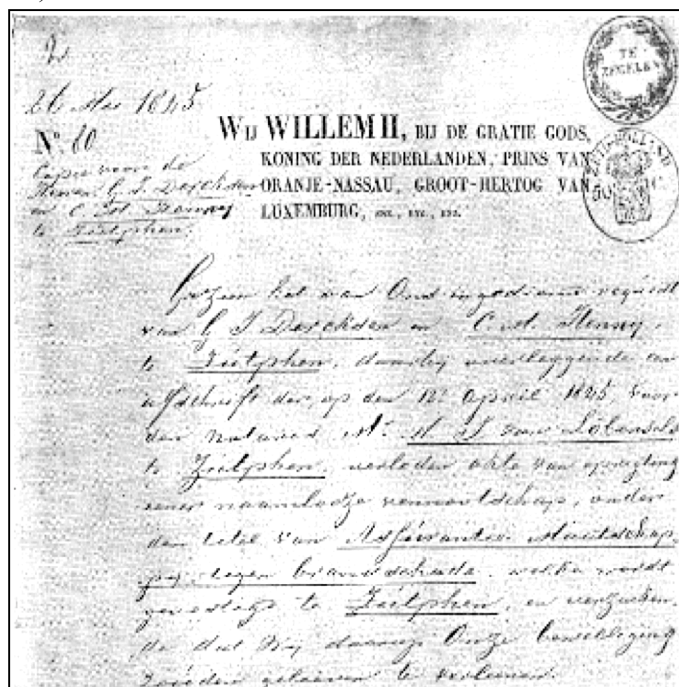 2
26 Mei 1845
N.º 80
Copie voor de
Heeren G J Dercksen
en C M Henny
te Zutphen
TE
ZEGELEN
ZUID-HOLLAND
50
WIJ WILLEM II, BIJ DE GRATIE GODS,
KONING DER NEDERLANDEN, PRINS VAN
ORANJE-NASSAU, GROOT-HERTOG VAN
LUXEMBURG, ENZ., ENZ., ENZ.
Gezien het aan Ons ingediend request
van G J Dercksen en C M Henny,
te Zutphen, daarbij overleggende een
afschrift der, op den 12e April 1845 voor
den notaris Mr. van Löbensels
te Zutphen, verleden akte van oprigting
eener naamlooze vennootschap, onder
den titel van Assurantie Maatschap-
pij tegen brandschade, welke wordt
gevestigd te Zutphen, en verzoeken-
de dat Wij daarop Onze bewilliging
zouden gelieven te verleenen.